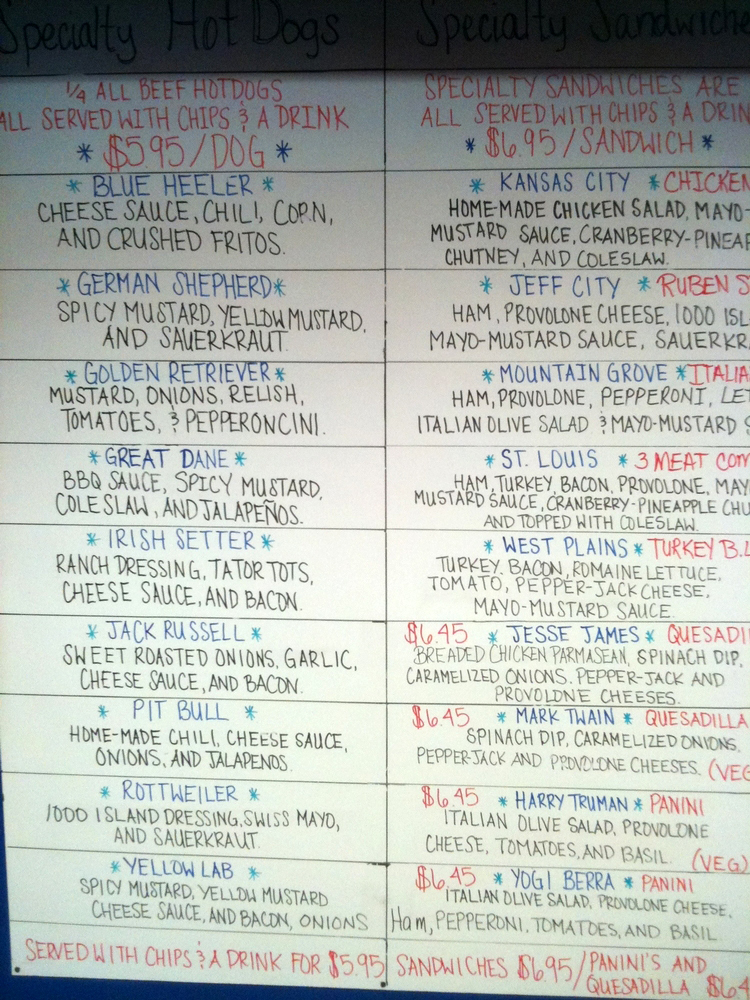 Specialty Hot Dogs
1/4 ALL BEEF HOTDOGS
ALL SERVED WITH CHIPS & A DRINK
* $5.95/DOG *
* BLUE HEELER *
CHEESE SAUCE, CHILI, CORN,
AND CRUSHED FRITOS.
* GERMAN SHEPHERD *
SPICY MUSTARD, YELLOW MUSTARD,
AND SAUERKRAUT.
* GOLDEN RETRIEVER *
MUSTARD, ONIONS, RELISH,
TOMATOES, & PEPPERONCINI.
* GREAT DANE *
BBQ SAUCE, SPICY MUSTARD,
COLESLAW, AND JALAPEÑOS.
* IRISH SETTER *
RANCH DRESSING, TATOR TOTS,
CHEESE SAUCE, AND BACON.
* JACK RUSSELL *
SWEET ROASTED ONIONS, GARLIC,
CHEESE SAUCE, AND BACON.
* PIT BULL *
HOME-MADE CHILI, CHEESE SAUCE,
ONIONS, AND JALAPENOS.
* ROTTWEILER *
1000 ISLAND DRESSING, SWISS MAYO,
AND SAUERKRAUT.
* YELLOW LAB *
SPICY MUSTARD, YELLOW MUSTARD
CHEESE SAUCE, AND BACON, ONIONS
SERVED WITH CHIPS & A DRINK FOR $5.95
Specialty Sandwiche
SPECIALTY SANDWICHES ARE
ALL SERVED WITH CHIPS & A DRIN
* $6.95/SANDWICH *
* KANSAS CITY * CHICKEN
HOME-MADE CHICKEN SALAD, MAYO-
MUSTARD SAUCE, CRANBERRY-PINEAP
CHUTNEY, AND COLESLAW.
* JEFF CITY * RUBEN S
HAM, PROVOLONE CHEESE, 1000 ISL
MAYO-MUSTARD SAUCE, SAUERKRA
* MOUNTAIN GROVE * ITALIA
HAM, PROVOLONE, PEPPERONI, LET
ITALIAN OLIVE SALAD & MAYO-MUSTARD S
* ST. LOUIS * 3 MEAT COM
HAM, TURKEY, BACON, PROVOLONE, MAY
MUSTARD SAUCE, CRANBERRY-PINEAPPLE CHU
AND TOPPED WITH COLESLAW.
* WEST PLAINS * TURKEY B.L
TURKEY, BACON, ROMAINE LETTUCE,
TOMATO, PEPPER-JACK CHEESE,
MAYO-MUSTARD SAUCE.
$6.45 * JESSE JAMES * QUESADI
BREADED CHICKEN PARMASEAN, SPINACH DIP,
CARAMELIZED ONIONS, PEPPER-JACK AND
PROVOLONE CHEESES.
$6.45 * MARK TWAIN * QUESADILLA
SPINACH DIP, CARAMELIZED ONIONS,
PEPPER-JACK AND PROVOLONE CHEESES. (VEG
$6.45 * HARRY TRUMAN * PANINI
ITALIAN OLIVE SALAD, PROVOLONE
CHEESE, TOMATOES, AND BASIL. (VEG)
$6.45 * YOGI BERRA * PANINI
ITALIAN OLIVE SALAD, PROVOLONE CHEESE,
Ham, PEPPERONI, TOMATOES, AND BASIL
SANDWICHES $6.95/PANINI'S AND
QUESADILLA $6.4